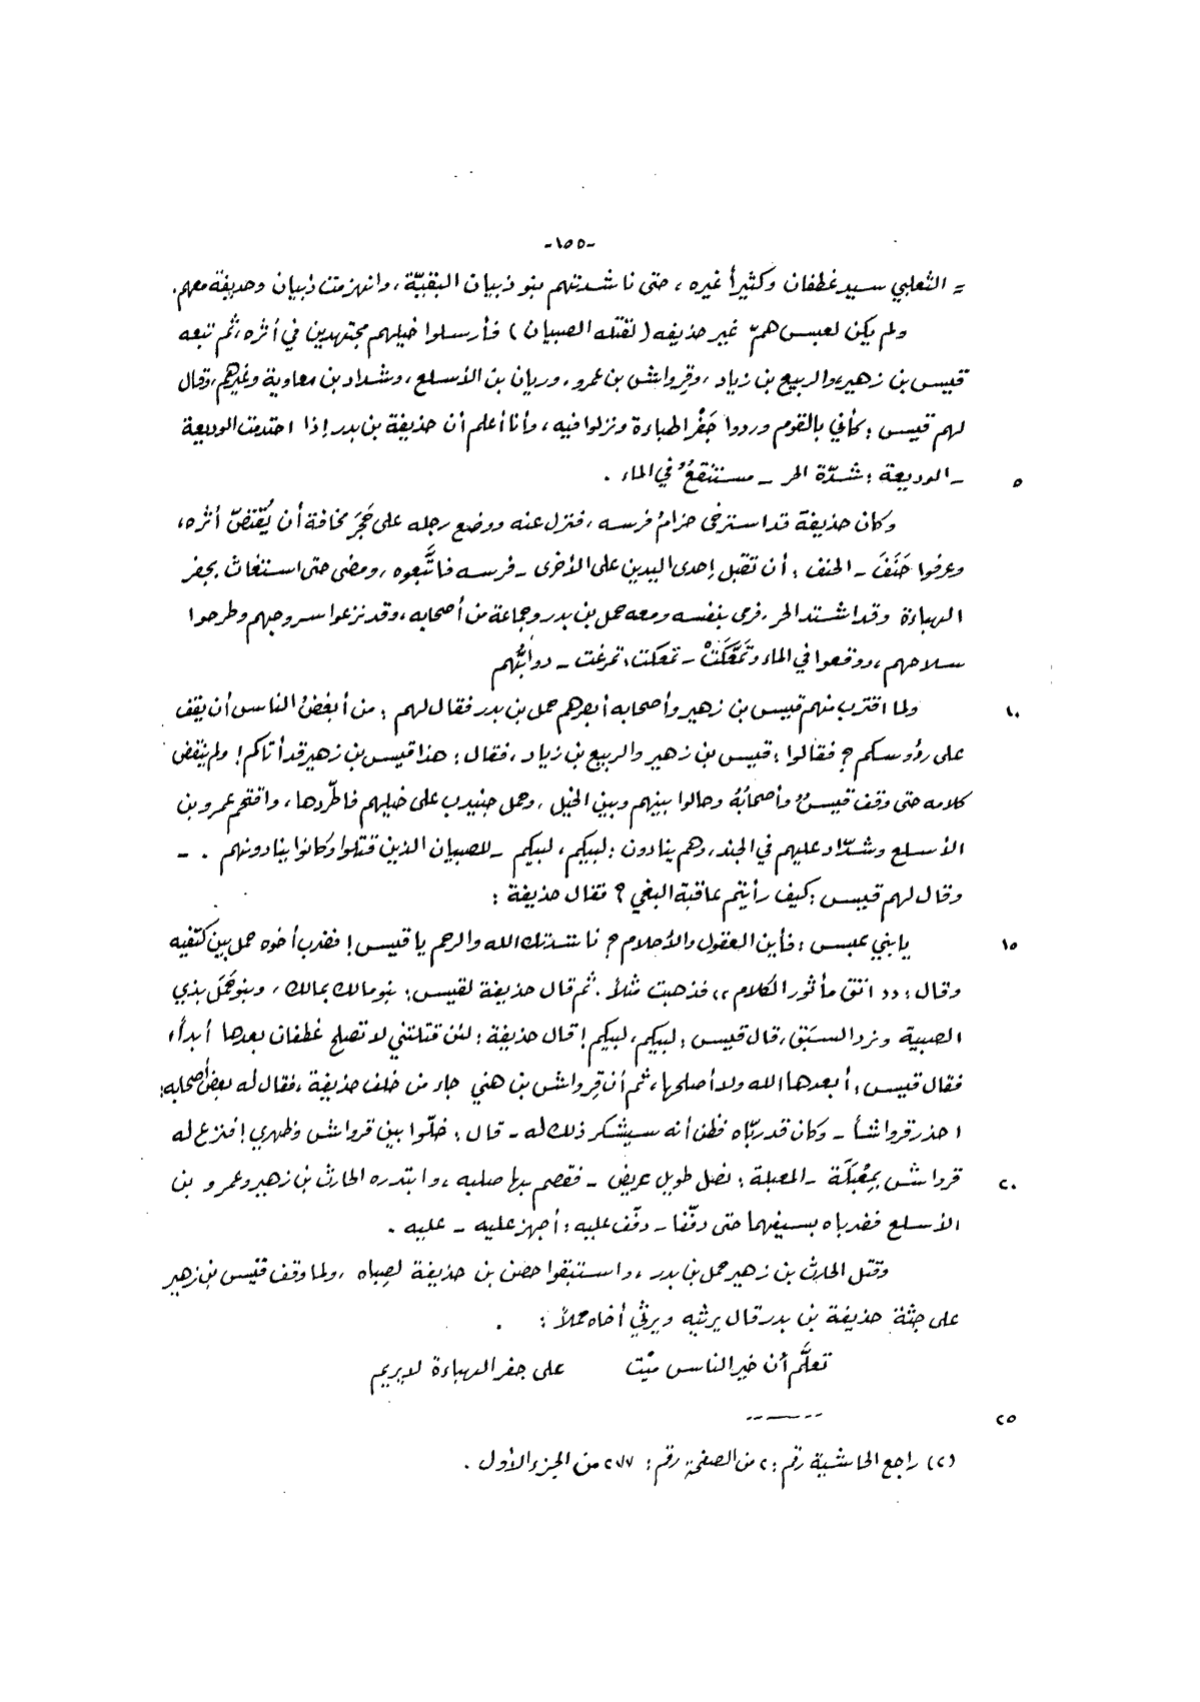 -١٥٥-
= الثعلبي سيد غطفان وكثيراً غيره ، حتى ناشدتهم بنو ذبيان البقيّة ، وانهزمت ذبيان وحذيفة معهم .
ولم يكن لعبس همّ غير حذيفه ( لقتله الصبيان ) فأرسلوا خيلهم مجتهدين في أثره ، ثم تبعه
قيس بن زهير والربيع بن زياد ، وقرواش بن عمرو ، وريان بن الأسلع ، وشداد بن معاوية وغيرهم ، وقال
لهم قيس : كأني بالقوم وردوا جَفْر الهباءة ونزلوا فيه ، وأنا أعلم أن حذيفة بن بدر إذا احتدمت الوديعة
٥ - الوديعة : شدّة الحر - مستنقعٌ في الماء .
وكان حذيفة قد استرخى حزامُ فرسه ، فنزل عنه ووضع رجله على حَجَر مخافة أن يُقتصّ أثره ،
وعرفوا حَنَفَ - الحنف : أن تقبل إحدى اليدين على الأخرى - فرسه فاتَّبعوه ، ومضى حتى استغاث بجفر
الهباءة وقد اشتد الحر ، فرمى بنفسه ومعه حمل بن بدر وجماعة من أصحابه ، وقد نزعوا سروجهم وطرحوا
سلاحهم ، ووقعوا في الماء وتَمَعَّكَتْ - تمعكت : تمرغت - دوابُّهم
١٠ ولما اقترب منهم قيس بن زهير وأصحابه أبصرهم حمل بن بدر فقال لهم : من أبغضُ الناس أن يقف
على رؤوسكم ؟ فقالوا : قيس بن زهير والربيع بن زياد ، فقال : هذا قيس بن زهير قد أتاكم ! ولم ينقض
كلامه حتى وقف قيسٌ وأصحابُهُ وحالوا بينهم وبين الخيل ، وحمل جنيدب على خيلهم فاطّردها ، واقتحم عمرو بن
الأسلع وشدّاد عليهم في الجند ، وهم ينادون : لبيكم ، لبيكم - للصبيان الذين قتلوا وكانوا ينادونهم . -
وقال لهم قيس : كيف رأيتم عاقبة البغي ؟ فقال حذيفة :
١٥ يا بني عبس : فأين العقول والأحلام ؟ ناشدتك الله والرحم يا قيس ! فضرب أخوه حمل بين كتفيه
وقال : ,, اتق مأثور الكلام ,, فذهبت مثلاً . ثم قال حذيفة لقيس : بنو مالك بمالك ، وبنو حَمَل بذي
الصبية ونرد السبَق ، قال قيس : لبيكم ، لبيكم ! قال حذيفة : لئن قتلتني لا تصلح غطفان بعدها أبداً ،
فقال قيس : أبعدها الله ولا أصلحها ، ثم أن قرواش بن هني جاء من خلف حذيفة ، فقال له بعض أصحابه :
احذر قرواشاً - وكان قد ربّاه فظن أنه سيشكر ذلك له - قال : خلّوا بين قرواش وظهري ! فنزع له
٢٠ قرواش بمِعْبَلَة - المعبلة : نصل طويل عريض - فقصم بها صلبه ، وابتدره الحارث بن زهير وعمرو بن
الأسلع فضرباه بسيفيهما حتى دفّفا - دفّف عليه : أجهز عليه - عليه .
وقتل الحارث بن زهير حمل بن بدر ، واستبقوا حصن بن حذيفة لصباه ، ولما وقف قيس بن زهير
على جثة حذيفة بن بدر قال يرثيه ويرثي أخاه حملاً :
تعلَّم أن خير الناس ميْت على جفر الهباءة لا يريم
٢٥
(٢) راجع الحاشية رقم : ٢ من الصفحة رقم : ٢٧٧ من الجزء الأول .